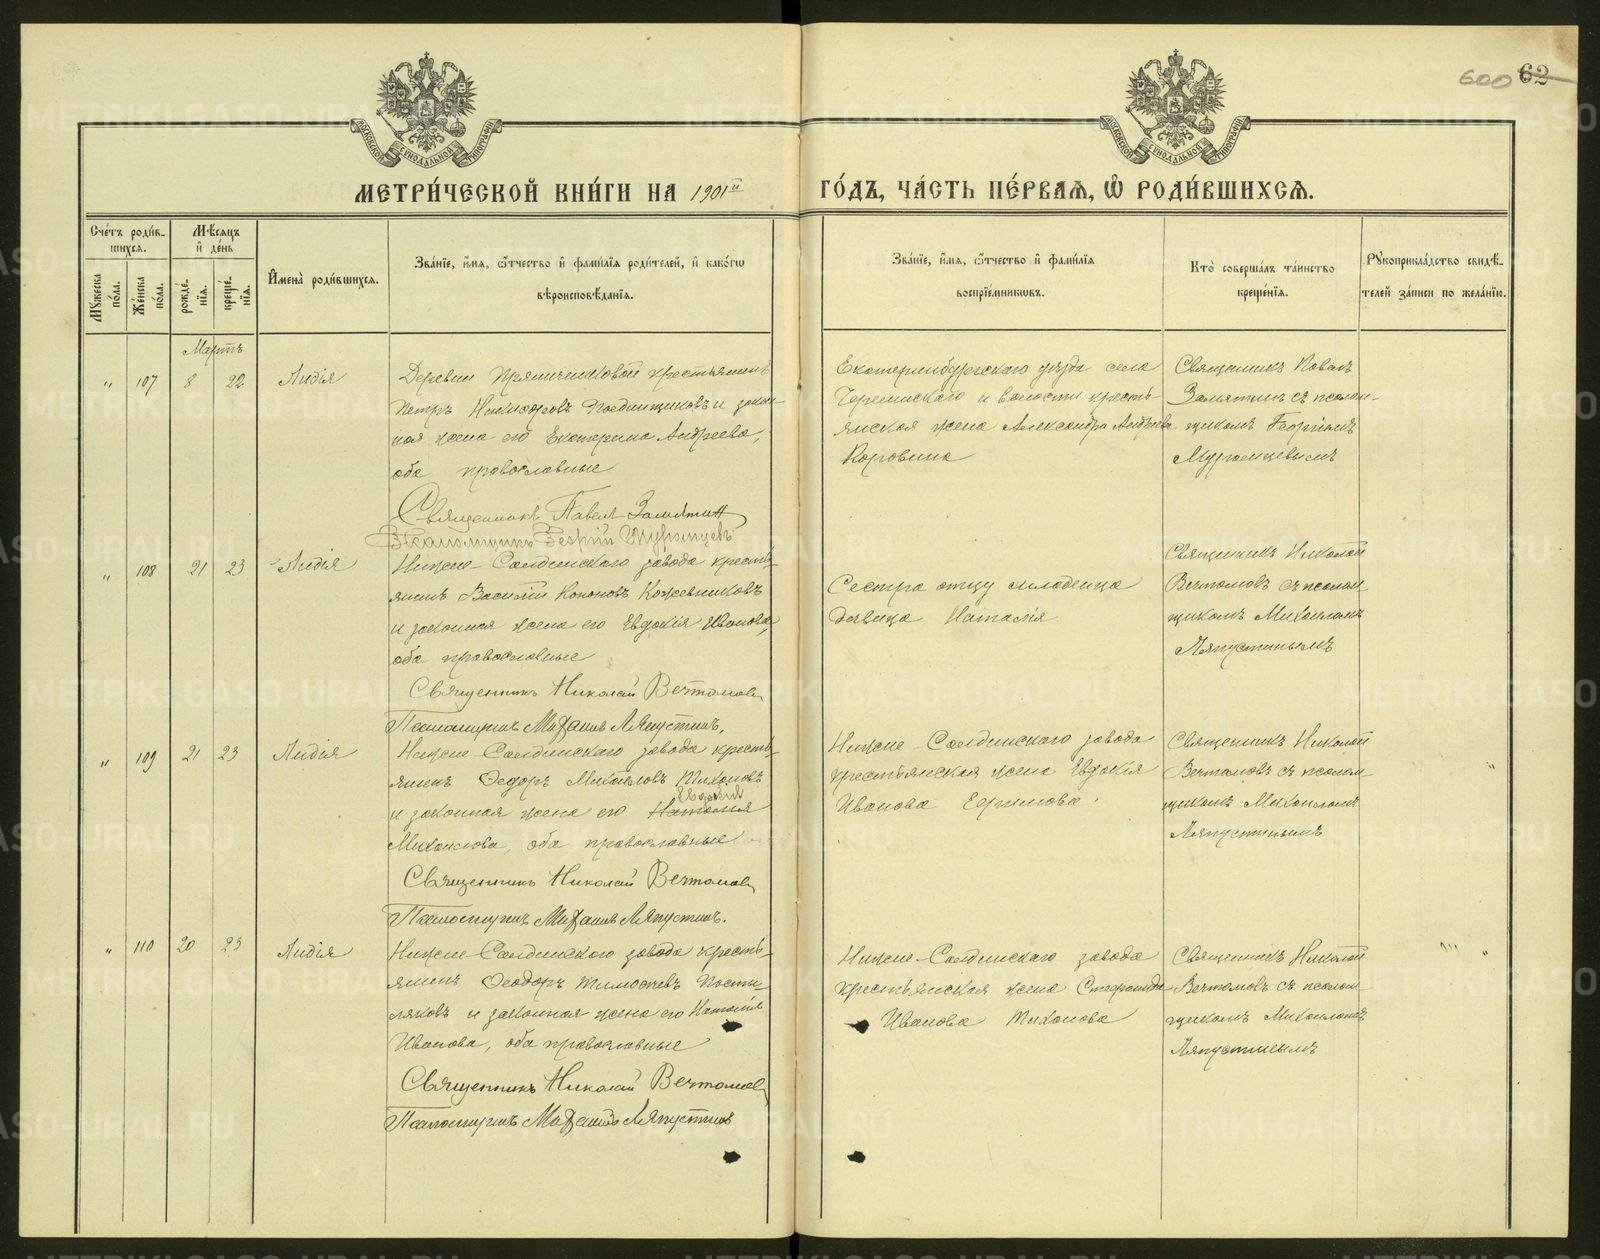 600 62
МЕТРИ́ЧЕСКОЙ КНИ́ГИ НА 1901й ГО́ДЪ, ЧА́СТЬ ПЕ́РВАЯ, Ѡ РОДИ́ВШИХСЯ.
МОСКОВСКОЙ СѴНОДАЛЬНОЙ ТИПОГРАФІИ
МОСКОВСКОЙ СѴНОДАЛЬНОЙ ТИПОГРАФІИ
Сче́тъ роди́в-
шихся.
Му́жеска по́ла.
Же́нска по́ла.
Мѣ́сяцъ
и де́нь
рожде́-
нія.
креще́-
нія.
Имена̀ роди́вшихся.
Зва́ніе, и́мя, ѻ́тчество и фами́лія роди́телей, и како́гѡ
вѣроисповѣ́данія.
Зва́ніе, и́мя, ѻ́тчество и фами́лія
воспріе́мниковъ.
Кто̀ соверша́лъ та́инство
креще́нія.
Рукоприкла́дство свидѣ́-
телей за́писи по жела́нію.
Мартъ
" 107 8 22 Лидія
Деревни Пряничниковой крестьянинъ
Петръ Никифоровъ и закон-
ная жена его Екатерина Андреева,
оба православные
Священникъ Павелъ Замятинъ
Псаломщикъ Георгій Муромцевъ
Екатеринбургскаго уѣзда села
и волости кресть-
янская жена Александра Андреева
Коровина
Священникъ Павелъ
Замятинъ съ псалом-
щикомъ Георгіемъ
Муромцевымъ
" 108 21 23 Лидія
Нижне-Салдинскаго завода кресть-
янинъ Василій Кононовъ Кожевниковъ
и законная жена его Евдокія Иванова,
оба православные
Священникъ Николай Вечтомовъ
Псаломщикъ Михаилъ Ляпустинъ.
Сестра отцу младенца
дѣвица Наталія
Священникъ Николай
Вечтомовъ съ псалом-
щикомъ Михаиломъ
Ляпустинымъ
" 109 21 23 Лидія
Нижне-Салдинскаго завода кресть-
янинъ Ѳедоръ Михаиловъ Тихоновъ
Евдокія
и законная жена его Наталія
Михаилова, оба православные
Священникъ Николай Вечтомовъ
Псаломщикъ Михаилъ Ляпустинъ.
Нижне-Салдинскаго завода
крестьянская жена Евдокія
Иванова
Священникъ Николай
Вечтомовъ съ псалом-
щикомъ Михаиломъ
Ляпустинымъ
" 110 20 23 Лидія
Нижне-Салдинскаго завода кресть-
янинъ Ѳеодоръ Тимоѳеевъ Посты-
ляковъ и законная жена его Наталія
Иванова, оба православные
Священникъ Николай Вечтомовъ
Псаломщикъ Михаилъ Ляпустинъ
Нижне-Салдинскаго завода
крестьянская жена Стефанида
Иванова Тихонова
Священникъ Николай
Вечтомовъ съ псалом-
щикомъ Михаиломъ
Ляпустинымъ
METRIKI.GASO-URAL.RU